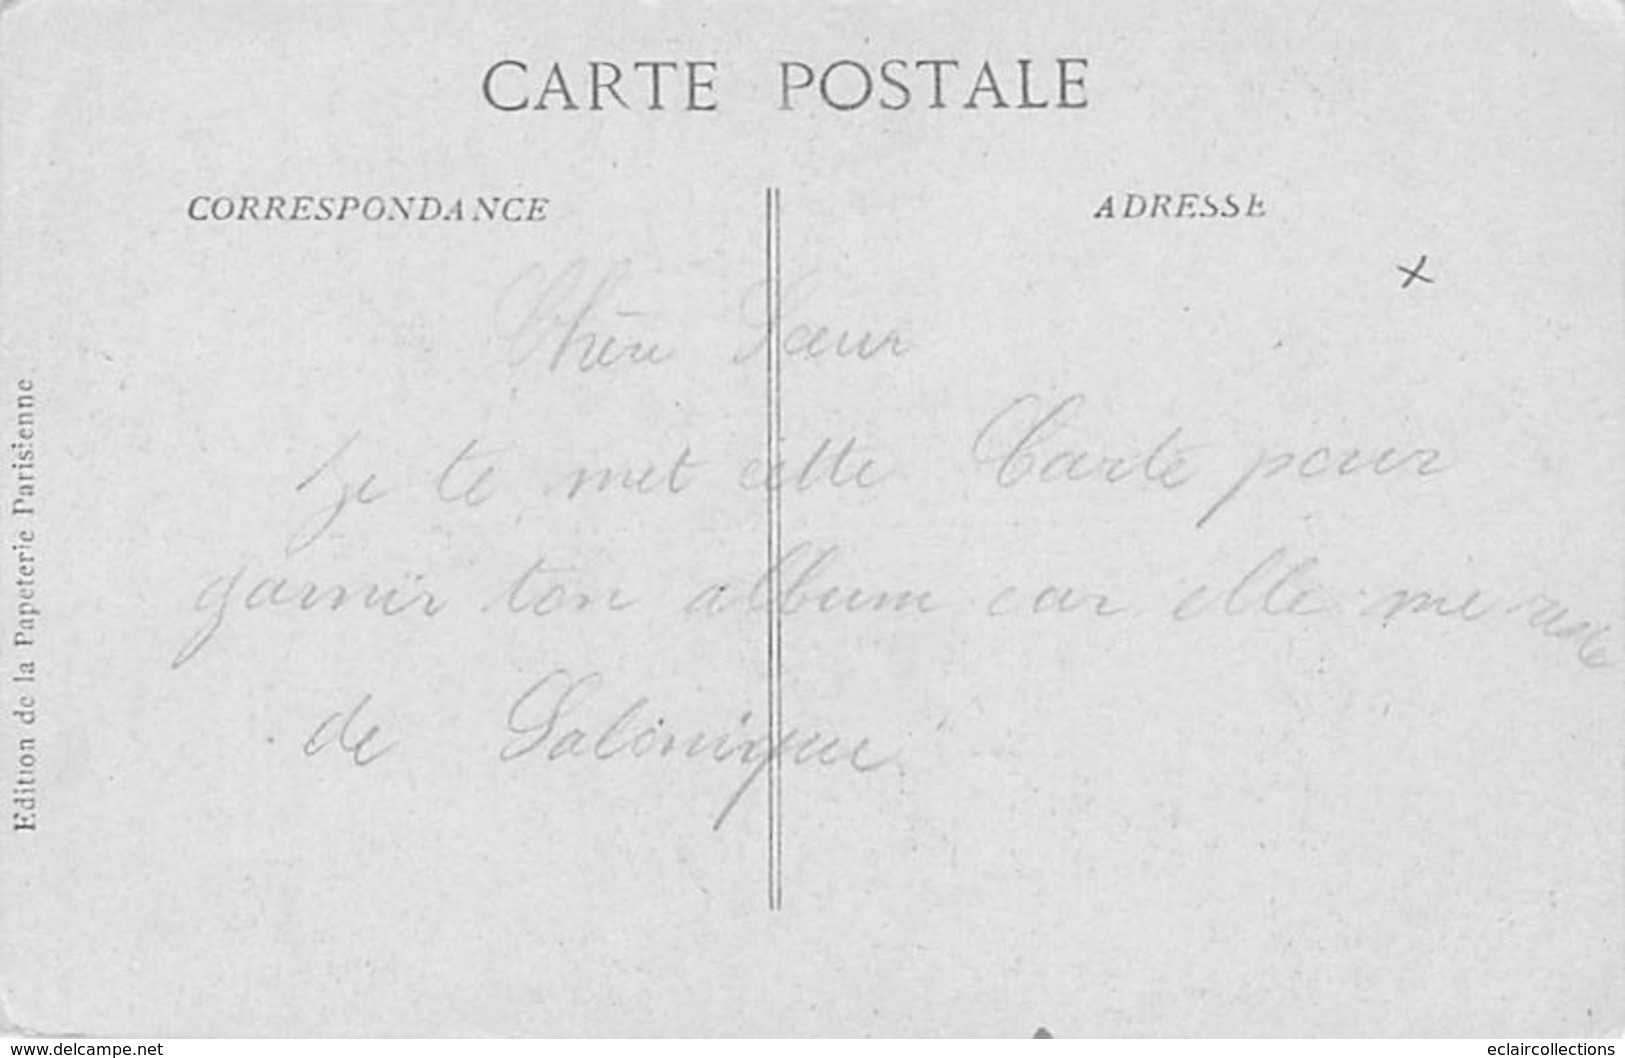 CARTE POSTALE
CORRESPONDANCE
ADRESSE
Chère Sœur
Je te met cette Carte pour
garnir ton album car elle me reste
de Salonique
Edition de la Papeterie Parisienne
www.delcampe.net
eclaircollections